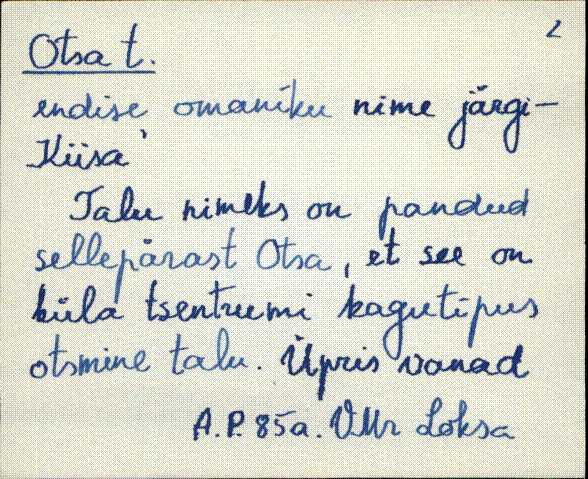 2
Otsa t.
endise omaniku nime järgi -
Kiisa'
Talu nimeks on pandud
sellepärast Otsa, et see on
küla tsentrumi kagutipus
otsmine talu. Üpris vanad
A.P. 85a. VMr Loksa